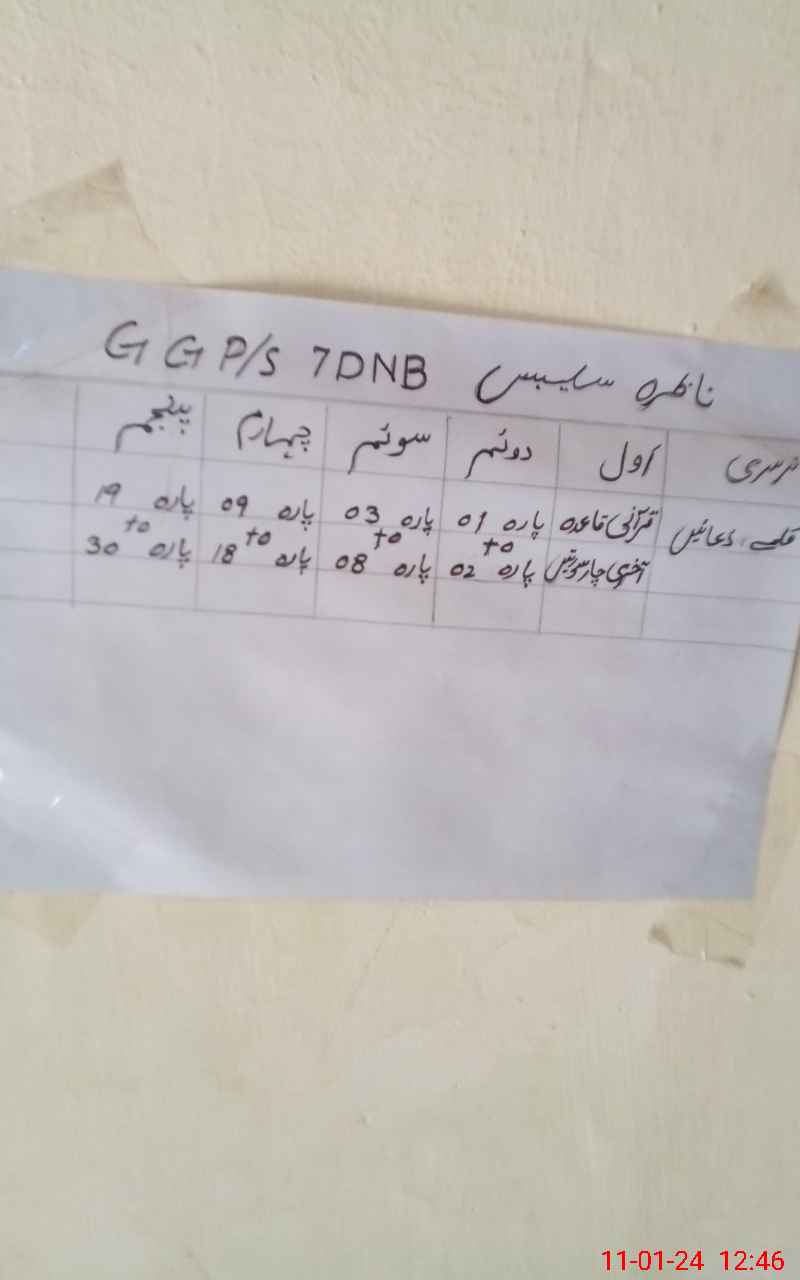 ناظرہ سلیبس GGP/S 7DNB
نرسری اول دوئم سوئم چہارم پنجم
کلمے، دعائیں قرآنی قاعدہ پارہ 01 پارہ 03 پارہ 09 پارہ 19
to to to to
آخری چار سورتیں پارہ 02 پارہ 08 پارہ 18 پارہ 30
11-01-24 12:46